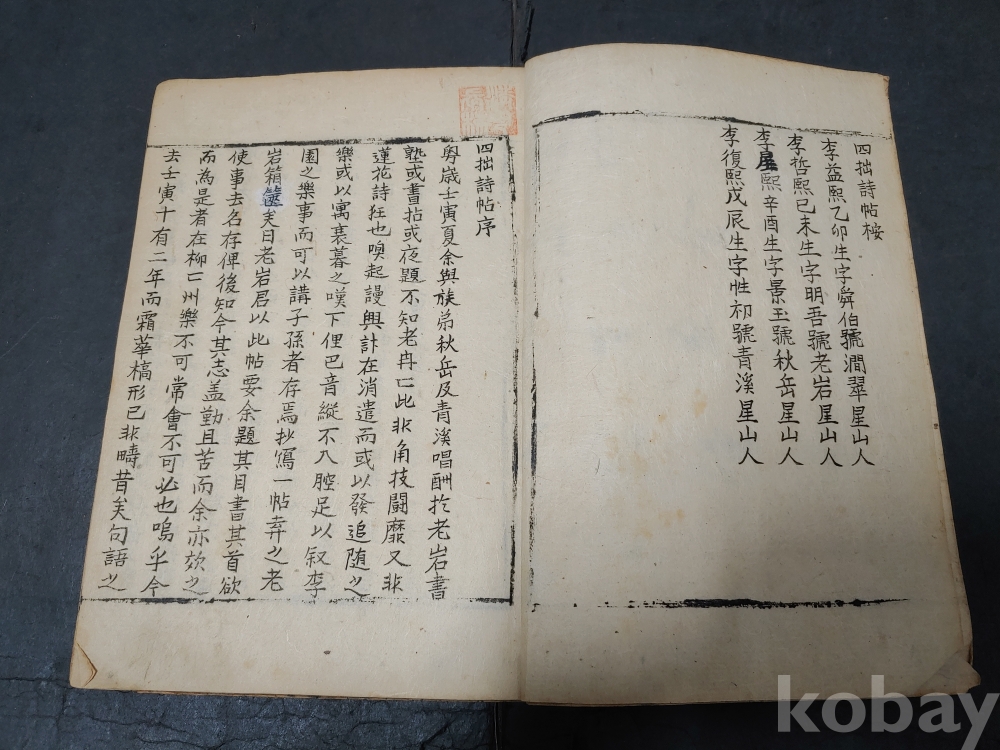 四拙詩帖桉
李益熙乙卯生字舜伯號澗翠星山人
李哲熙己未生字明吾號老岩星山人
李星熙辛酉生字景玉號秋岳星山人
李復熙戊辰生字性初號青溪星山人
四拙詩帖序
粤歲壬寅夏余與族弟秋岳及青溪唱酬扵老岩書
塾或晝拈或夜題不知老冉冉此非角技鬪靡又非
蓮花詩狂也嗅起謾興計在消遣而或以發追随之
樂或以寓衰暮之嘆下俚巴音縱不入腔足以叙李
園之樂事而可以講子孫者存焉抄寫一帖弆之老
岩箱篋矣日老岩君以此帖要余題其目書其首欲
使事去名存俾後知今其志盖勤且苦而余亦欬之
而為是者在柳亡州樂不可常會不可必也嗚乎今
去壬寅十有二年而霜華槁形已非疇昔矣句語之
kobay